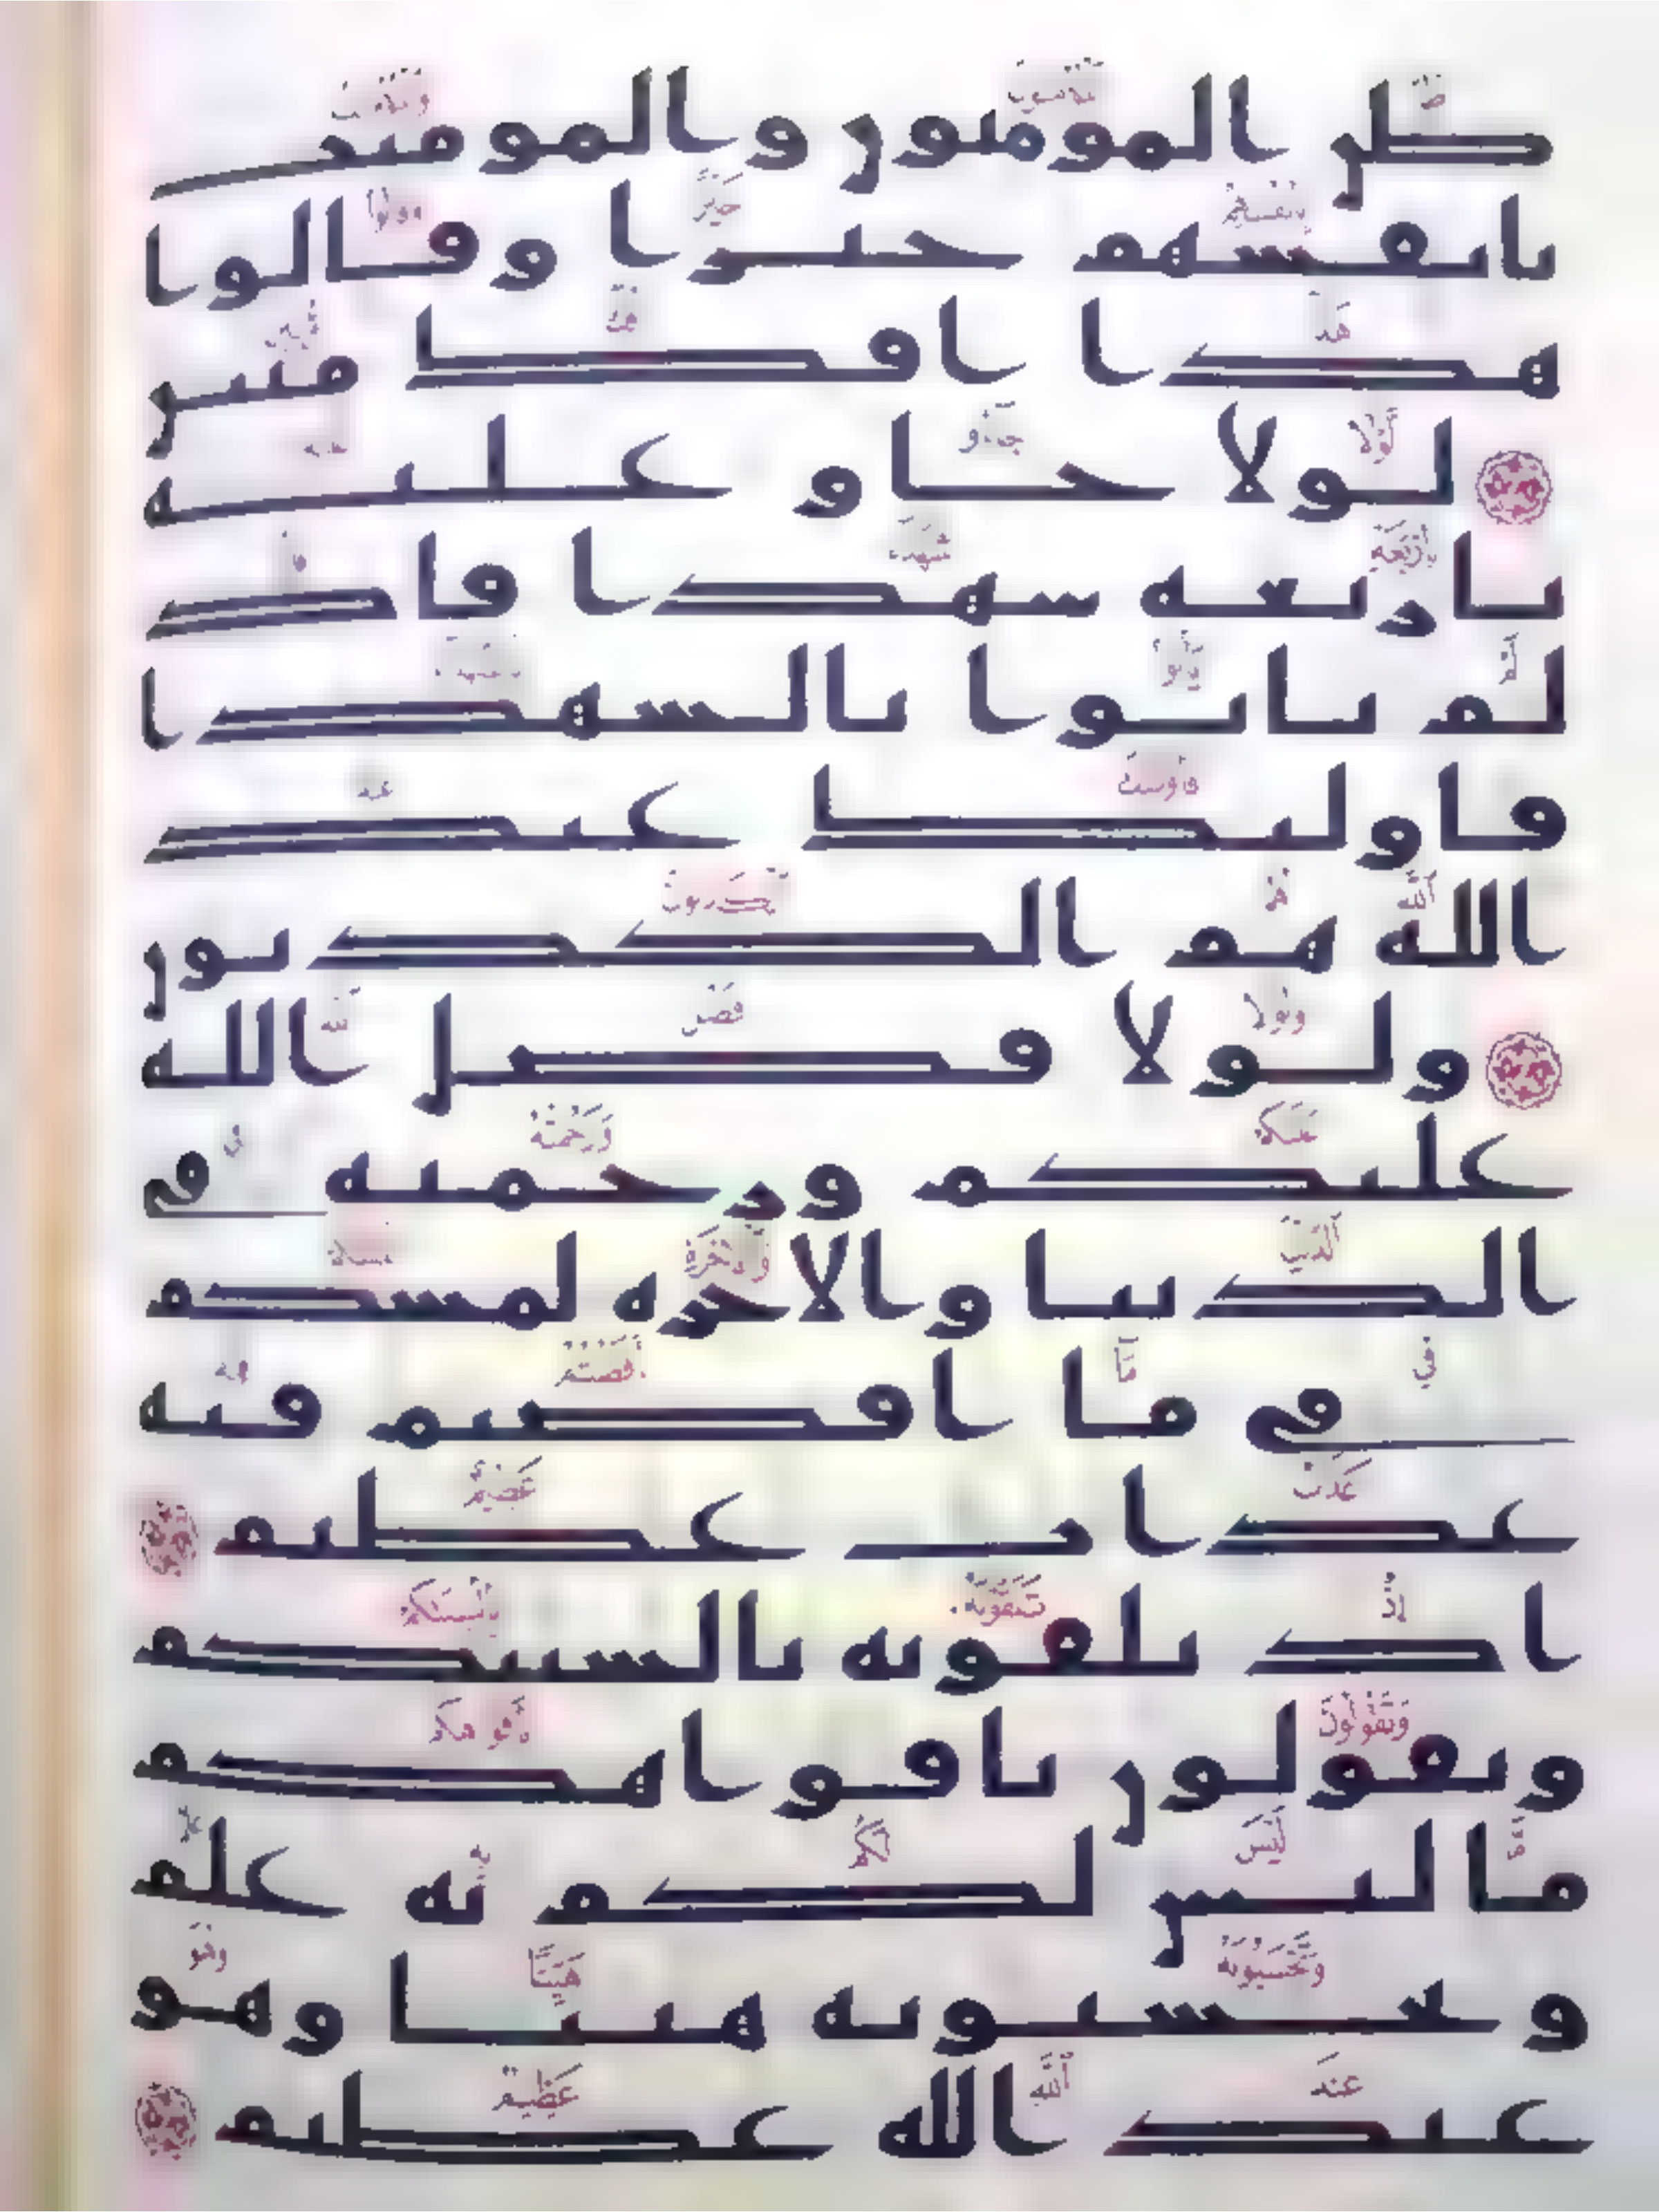 ظن المومنون والمومنت
بانفسهم خيرا وقالوا
هذا افك مبين
لولا جاو عليه
باربعه شهدا فاذ
لم ياتوا بالشهدا
فاوليك عند
الله هم الكذبون
ولولا فضل الله
عليكم ورحمته في
الدنيا والاخره لمسكم
في ما افضتم فيه
عذاب عظيم
اذ تلقونه بالسنتكم
وتقولون بافواهكم
ما ليس لكم به علم
وتحسبونه هينا وهو
عند الله عظيم